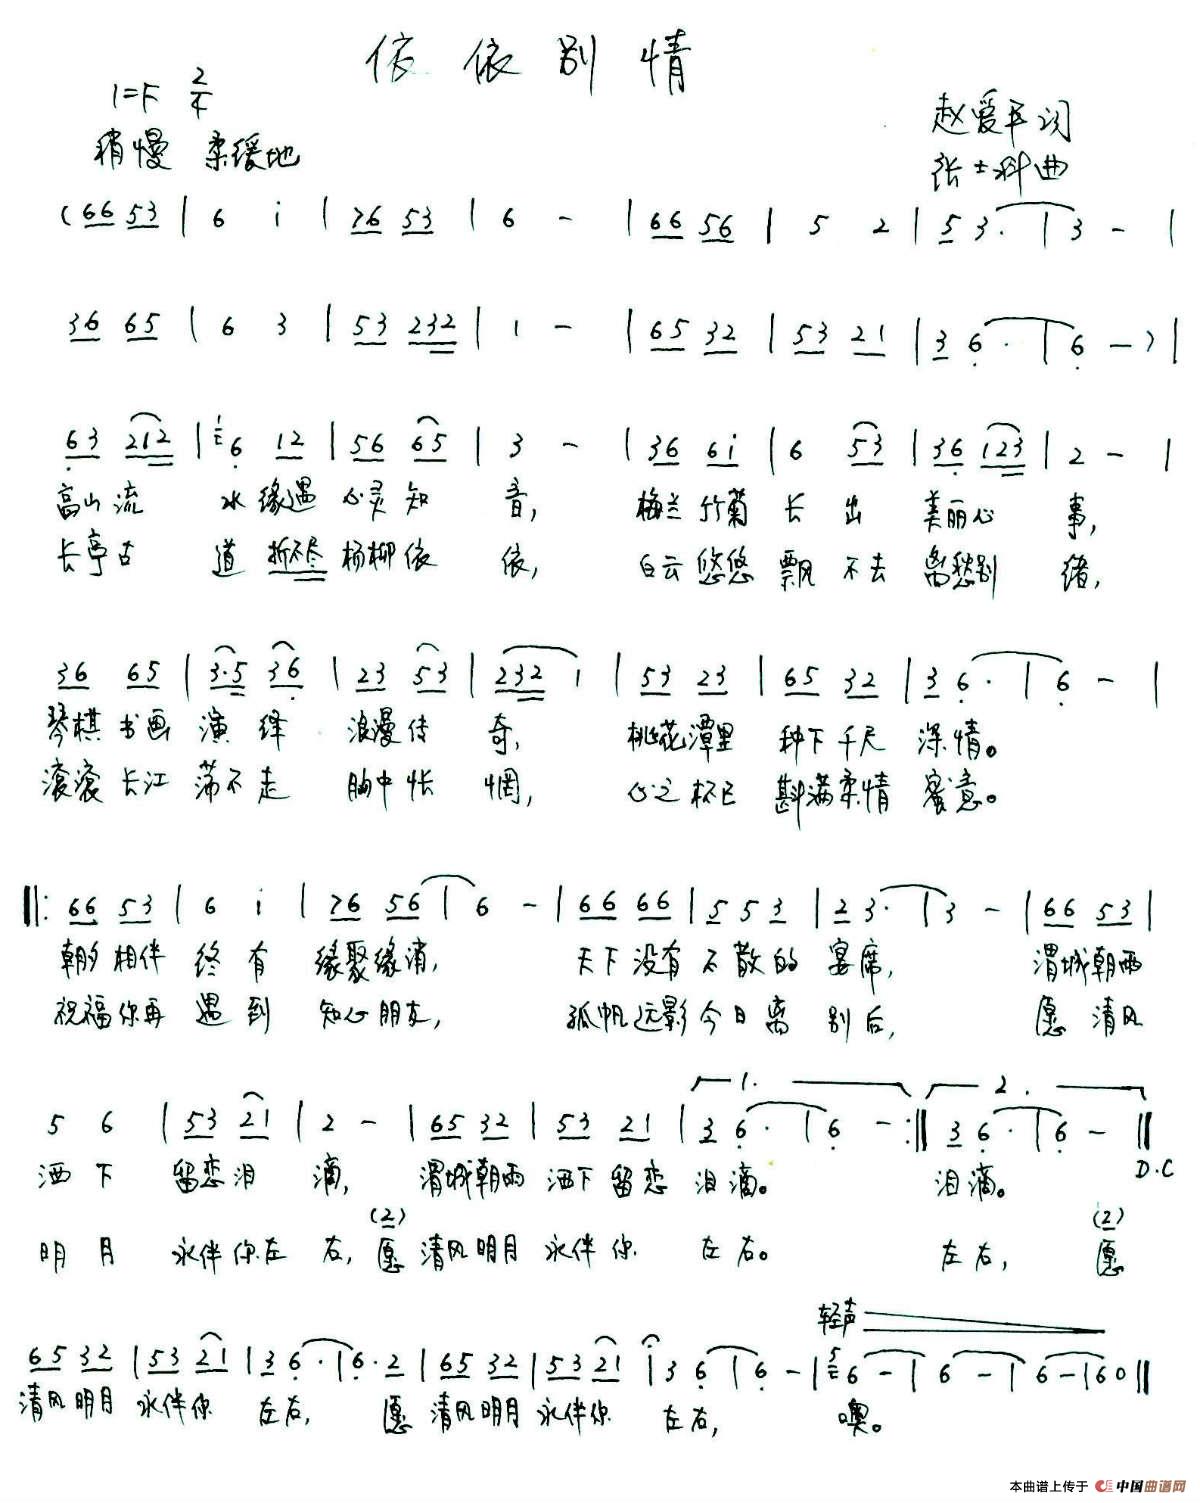 依依别情
1=F 2/4
稍慢 柔缓地
赵爱平词
张士科曲
(66 53 | 6 i | 76 53 | 6 - | 66 56 | 5 2 | 53· | 3 - |
36 65 | 6 3 | 53 232 | 1 - | 65 32 | 53 21 | 36· | 6 - ) |
63 212 | 6 12 | 56 65 | 3 - | 36 6i | 6 53 | 36 123 | 2 - |
高山流 水缘遇 心灵知 音, 梅兰竹菊 长出 美丽心 事,
长亭古 道折不尽 杨柳依 依, 白云悠悠 飘不去 离愁别 绪,
36 65 | 3·5 36 | 23 53 | 232 1 | 53 23 | 65 32 | 36· | 6 - |
琴棋书画 演绎 浪漫传 奇, 桃花潭里 种下千尺 深情。
滚滚长江 荡不走 胸中怅 惘, 心之杯已 斟满柔情 蜜意。
‖: 66 53 | 6 i | 76 56 | 6 - | 66 66 | 5 5 3 | 23· | 3 - | 66 53 |
朝夕相伴 终有 缘聚缘消, 天下没有 不散的 宴席, 渭城朝雨
祝福你再 遇到 知心朋友, 孤帆远影 今日离 别后, 愿清风
1. 2.
5 6 | 53 21 | 2 - | 65 32 | 53 21 | 36· | 6 - :‖ 36· | 6 - ‖
D.C
洒下 留恋泪 滴, 渭城朝雨 洒下留恋 泪滴。 泪滴。
(2) (2)
明月 永伴你左 右, 愿清风明月 永伴你 左右。 左右, 愿
轻声
65 32 | 53 21 | 36· | 6· 2 | 65 32 | 53 21 | 3 6 | 6 - | 6 - | 6 - | 6 - | 60 ‖
清风明月 永伴你 左右, 愿清风明月 永伴你 左右, 噢。
本曲谱上传于 中国曲谱网